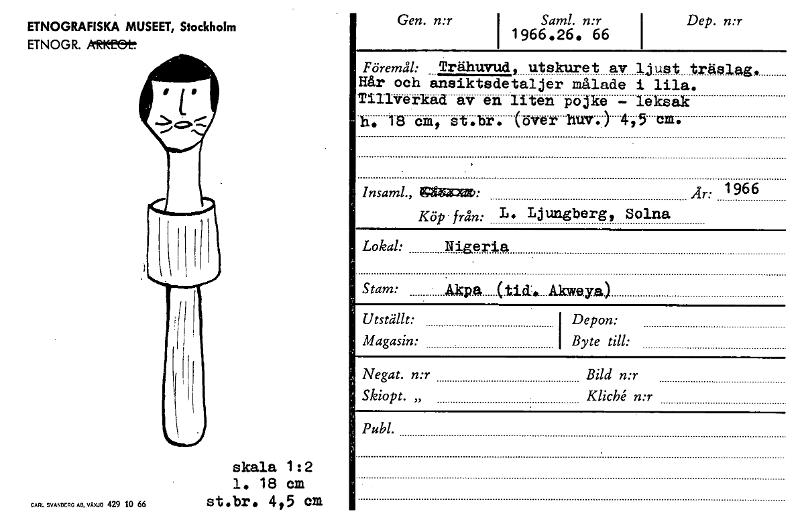 ETNOGRAFISKA MUSEET, Stockholm
ETNOGR. ARKEOL.
skala 1:2
l. 18 cm
st.br. 4,5 cm
CARL SVANBERG AB, VÄXJÖ 429 10 66
Gen. n:r Saml. n:r Dep. n:r
1966.26. 66
Föremål: Trähuvud, utskuret av ljust träslag.
Hår och ansiktsdetaljer målade i lila.
Tillverkad av en liten pojke - leksak
h. 18 cm, st.br. (över huv.) 4,5 cm.
Insaml., : År: 1966
Köp från: L. Ljungberg, Solna
Lokal: Nigeria
Stam: Akpa (tid. Akweya)
Utställt: Depon:
Magasin: Byte till:
Negat. n:r Bild n:r
Skiopt. „ Kliché n:r
Publ.